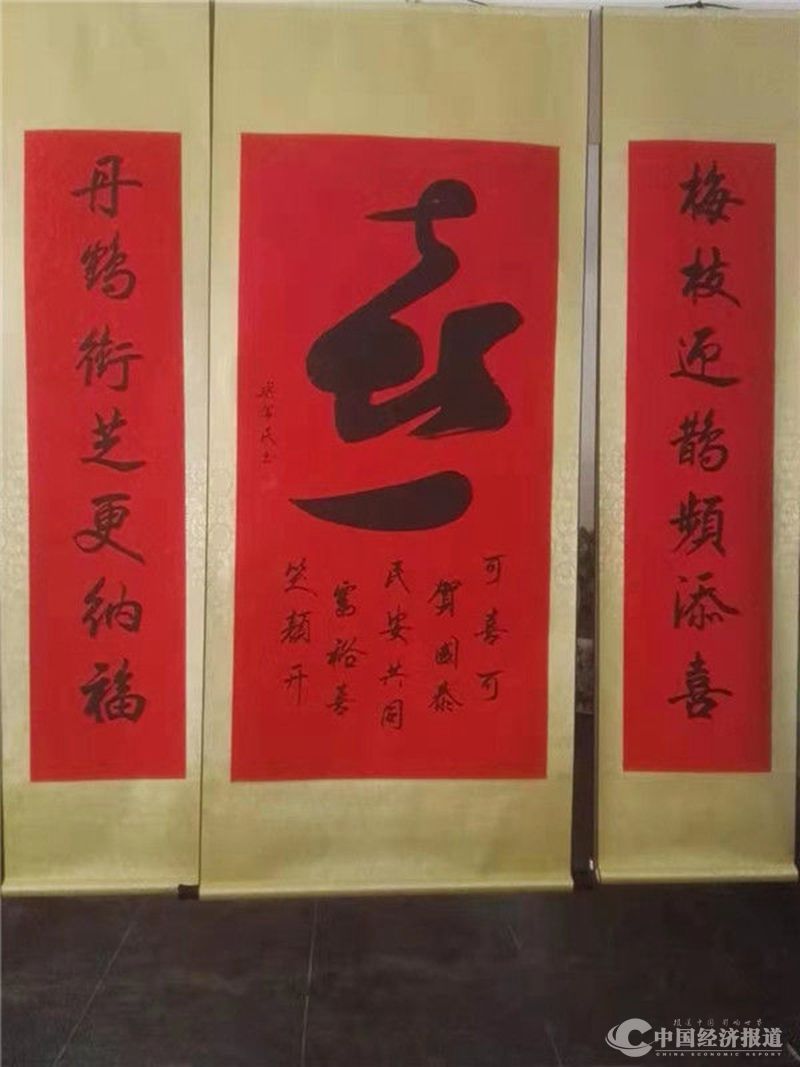 梅枝迎鹊頻添喜
喜
可喜可
賀國泰
民安共同
富裕喜
笑顏开
丹鹤銜芝更纳福
中国经济报道
CHINA ECONOMIC REPORT